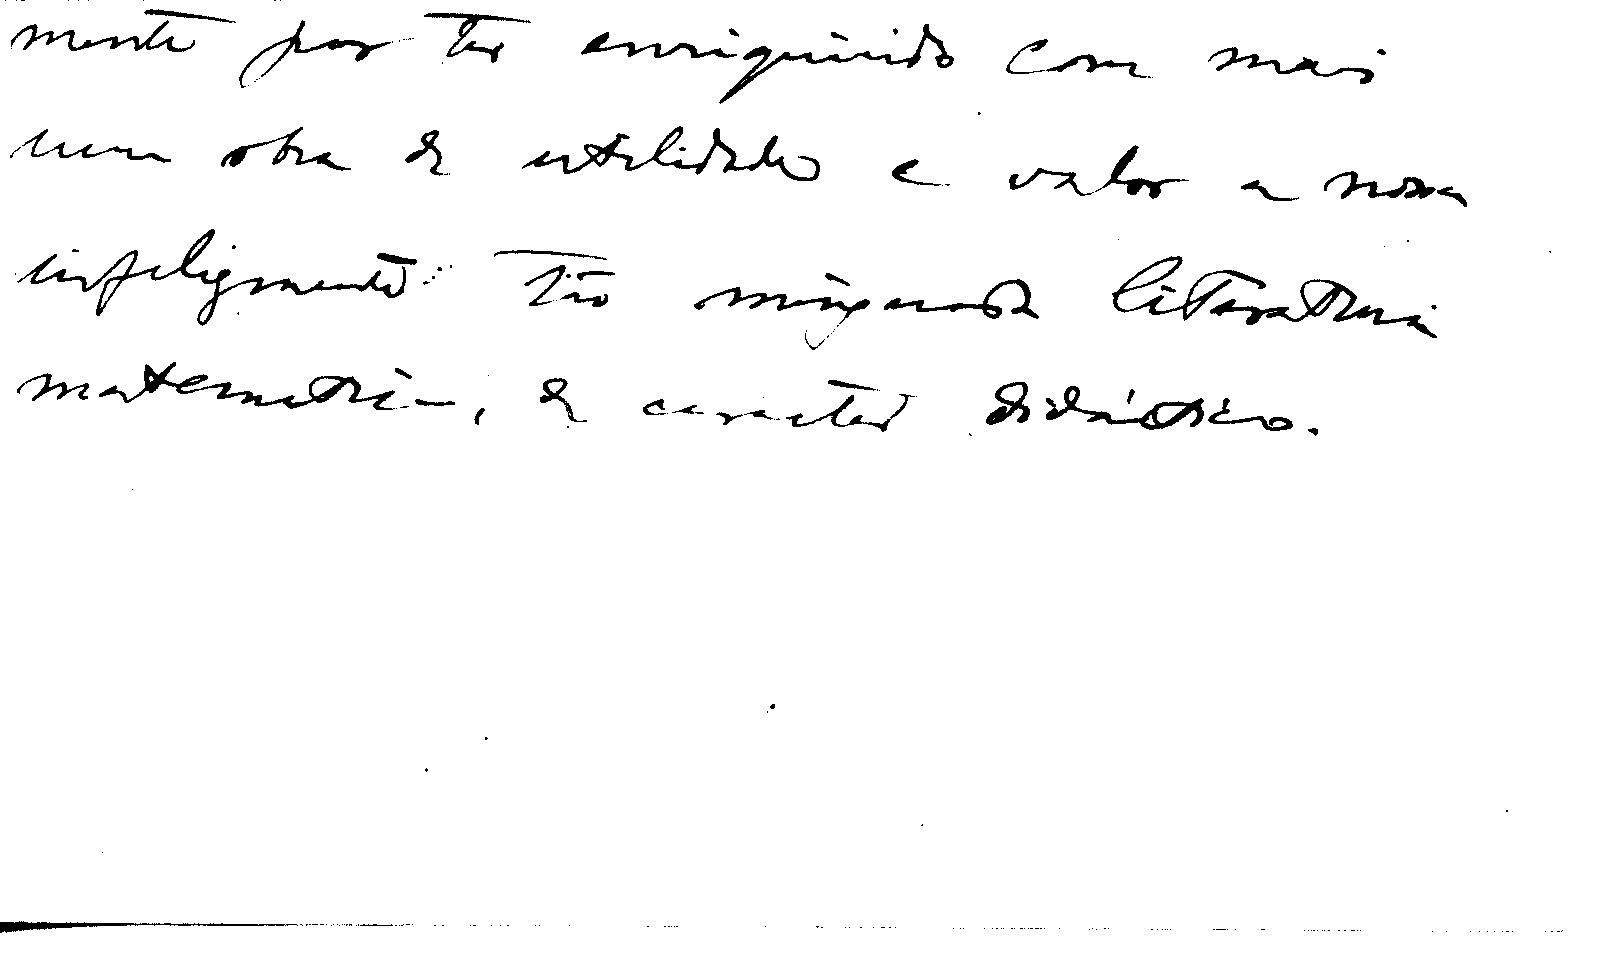 mente por ter enriquecido com mais
uma obra de utilidade e valor a nossa
infelizmente tão minguada literatura
matematica, de caracter didáctico.